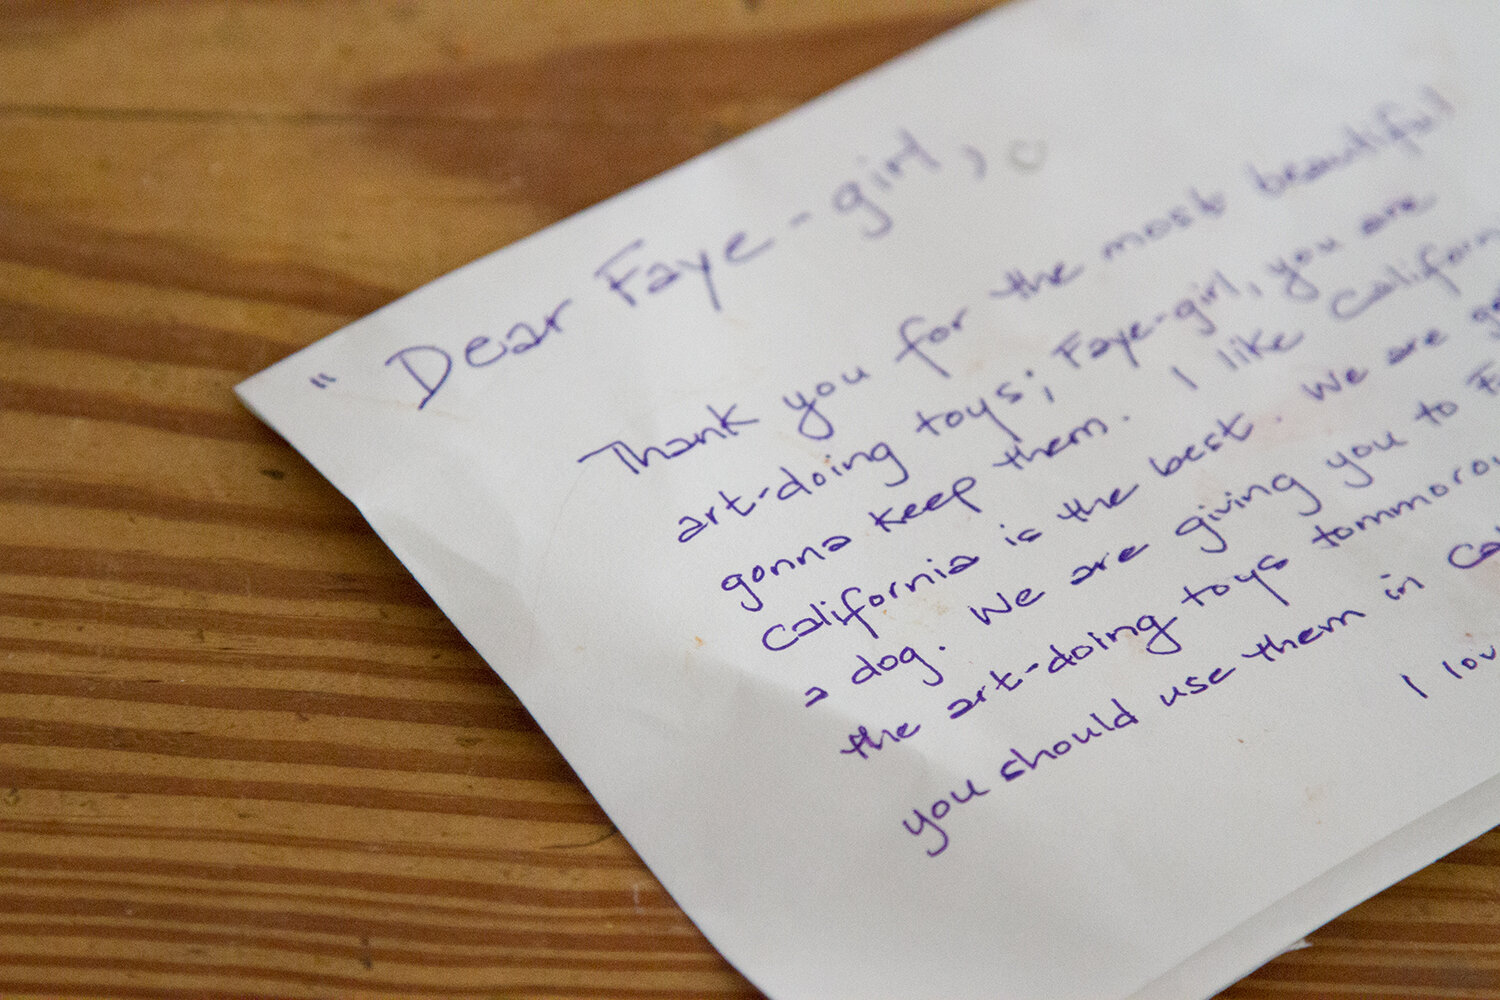 " Dear Faye-girl,
Thank you for the most beautiful
art-doing toys; Faye-girl, you are
gonna keep them. I like Californ
California is the best. We are ge
a dog. We are giving you to F
the art-doing toys tommorow
you should use them in Cal
I lov